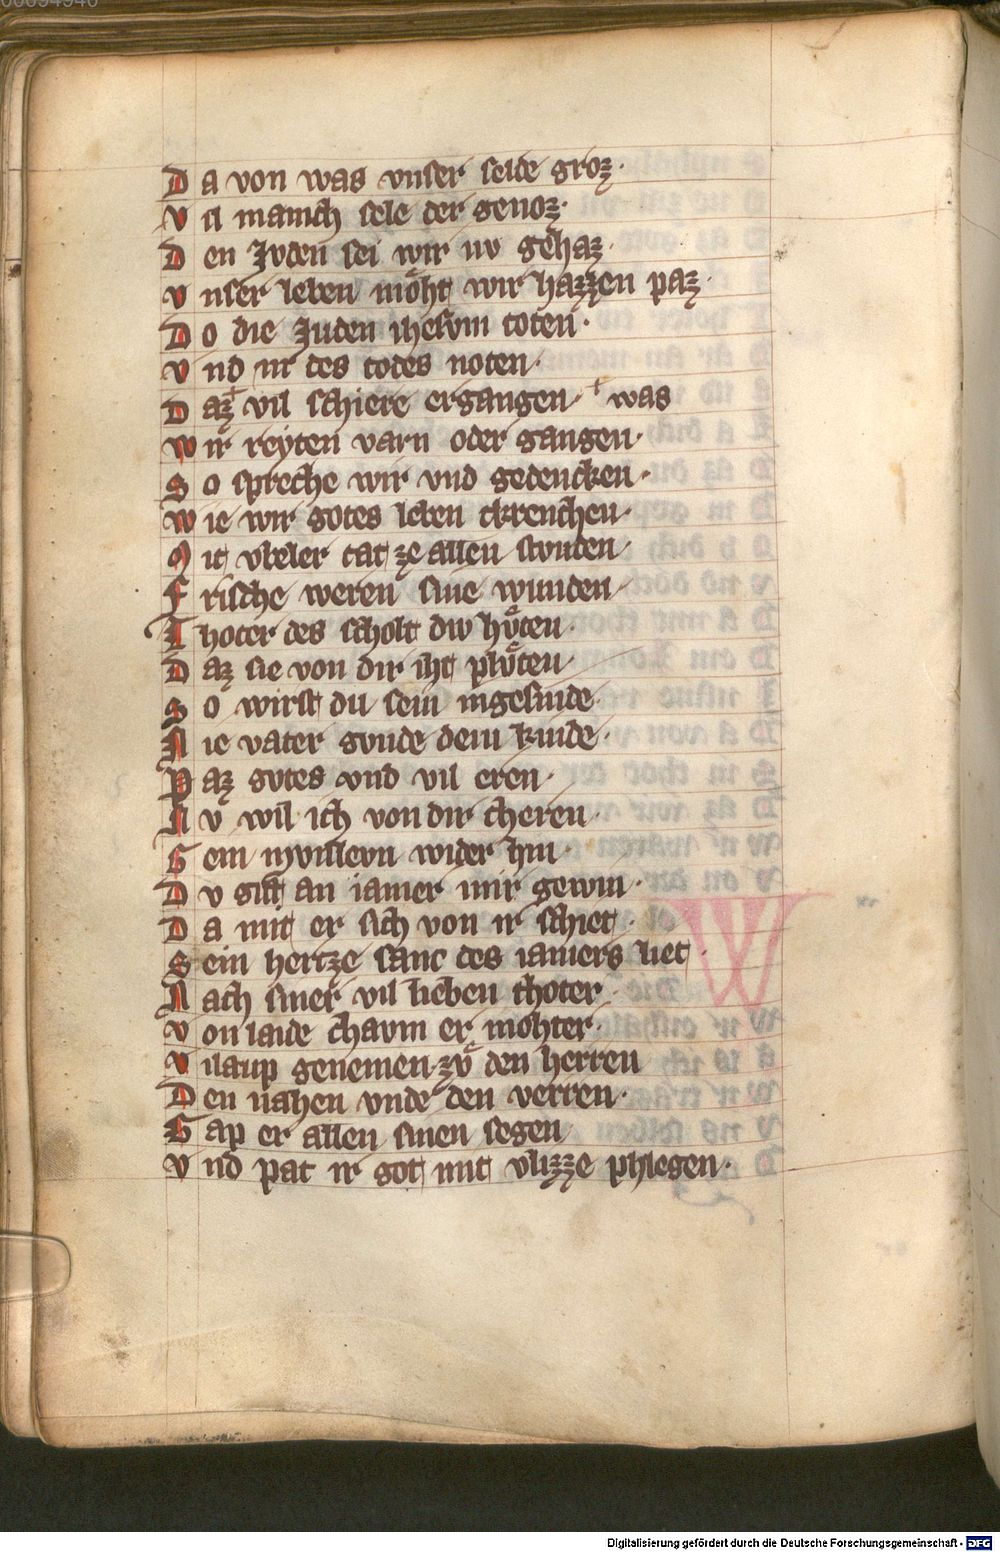 Da von was vnser selde groz·
Vil manich sele der genoz·
Den Jvden sei wir nv gehaz·
Vnser leben moͤht wir hazzen paz·
Do die Juden ihesvm toten·
Vnd in des todes noten·
Daz vil schiere ergangen was
Wir reyten varn oder gangen·
So spreche wir vnd gedencken·
Wie wir gotes leben chrenchen·
Mit vbeler tat ze allen stvnden
Frische weren sine wunden
Thoter des scholt dv hvͤten·
Daz sie von dir iht plvͤten
So wirst du sein ingesinde·
Nie vater gvnde dem kinde·
Paz gvtes vnd vil eren·
Nv wil ich von dir cheren·
Gein mvnlevn wider hin·
Dv gist an iamer mir gewin·
Da mit er sich von ir schiet·
Sein hertze sanc des iamers liet·
Nach siner vil lieben thoter·
Von laide chavm er mohter·
Vrlaup genemen zvͦ den herren
Den nahen vnde den verren·
Gap er allen sinen segen
Vnd pat ir got mit vlizze phlegen·
Digitalisierung gefördert durch die Deutsche Forschungsgemeinschaft - DFG